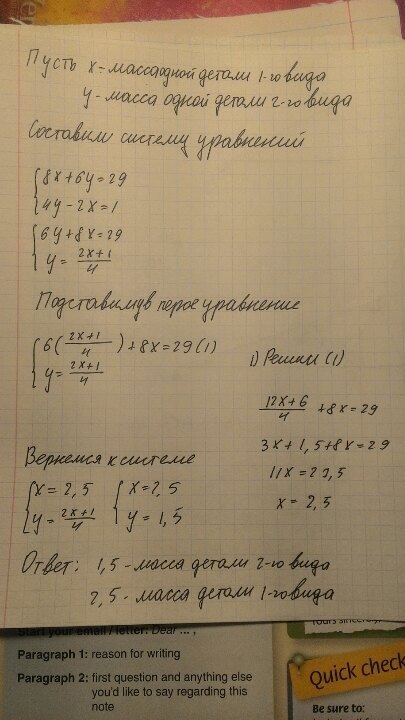 Пусть x - масса одной детали 1-го вида
y - масса одной детали 2-го вида
Составим систему уравнений
{8x+6y=29
{4y-2x=1
{6y+8x=29
{y=(2x+1)/4
Подставим y в перое уравнение
{6((2x+1)/4)+8x=29 (1)
{y=(2x+1)/4
1) Решим (1)
(12x+6)/4+8x=29
3x+1,5+8x=29
11x=27,5
x=2,5
Вернемся к системе
{x=2,5 {x=2,5
{y=(2x+1)/4 {y=1,5
Ответ: 1,5-масса детали 2-го вида
2,5-масса детали 1-го вида
Start your email / letter: Dear ... ,
Paragraph 1: reason for writing
Paragraph 2: first question and anything else
you'd like to say regarding this
note
Yours sincerely,
Quick check
Be sure to: